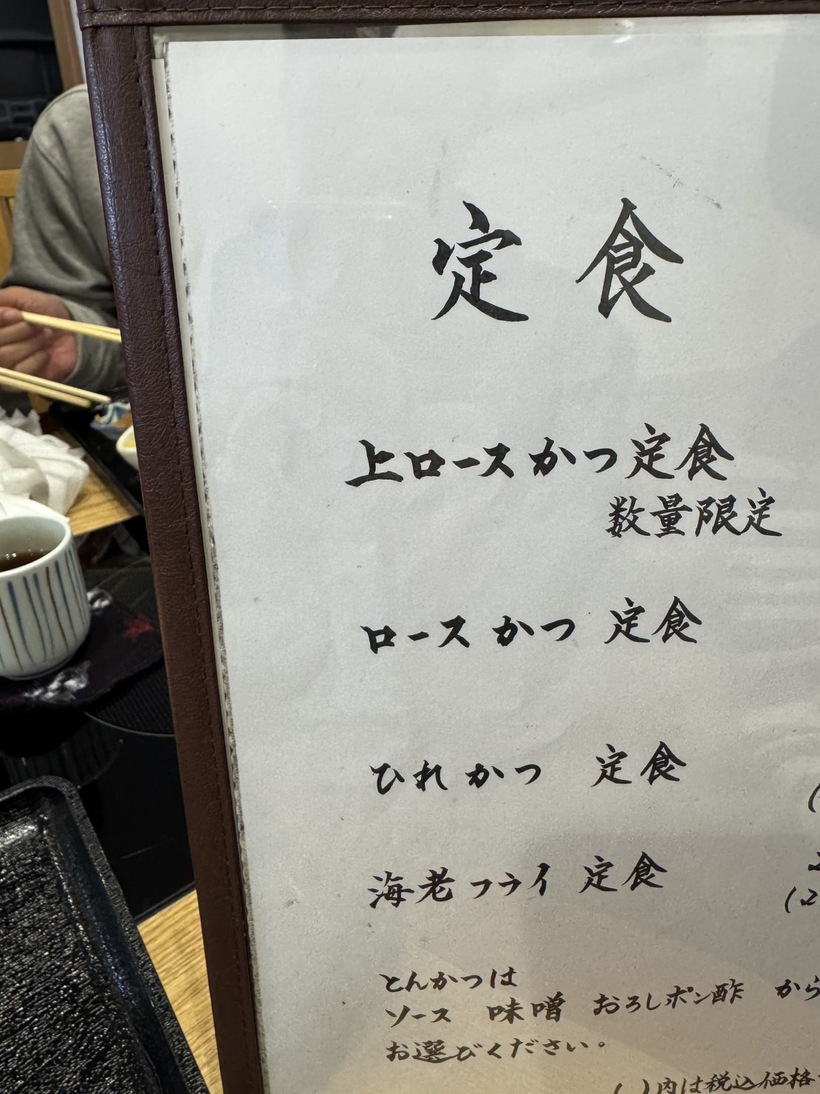 定食
上ロースかつ定食
数量限定
ロースかつ 定食
ひれかつ 定食
海老フライ 定食
とんかつは
ソース 味噌 おろしポン酢 から
お選びください。
( )内は税込価格